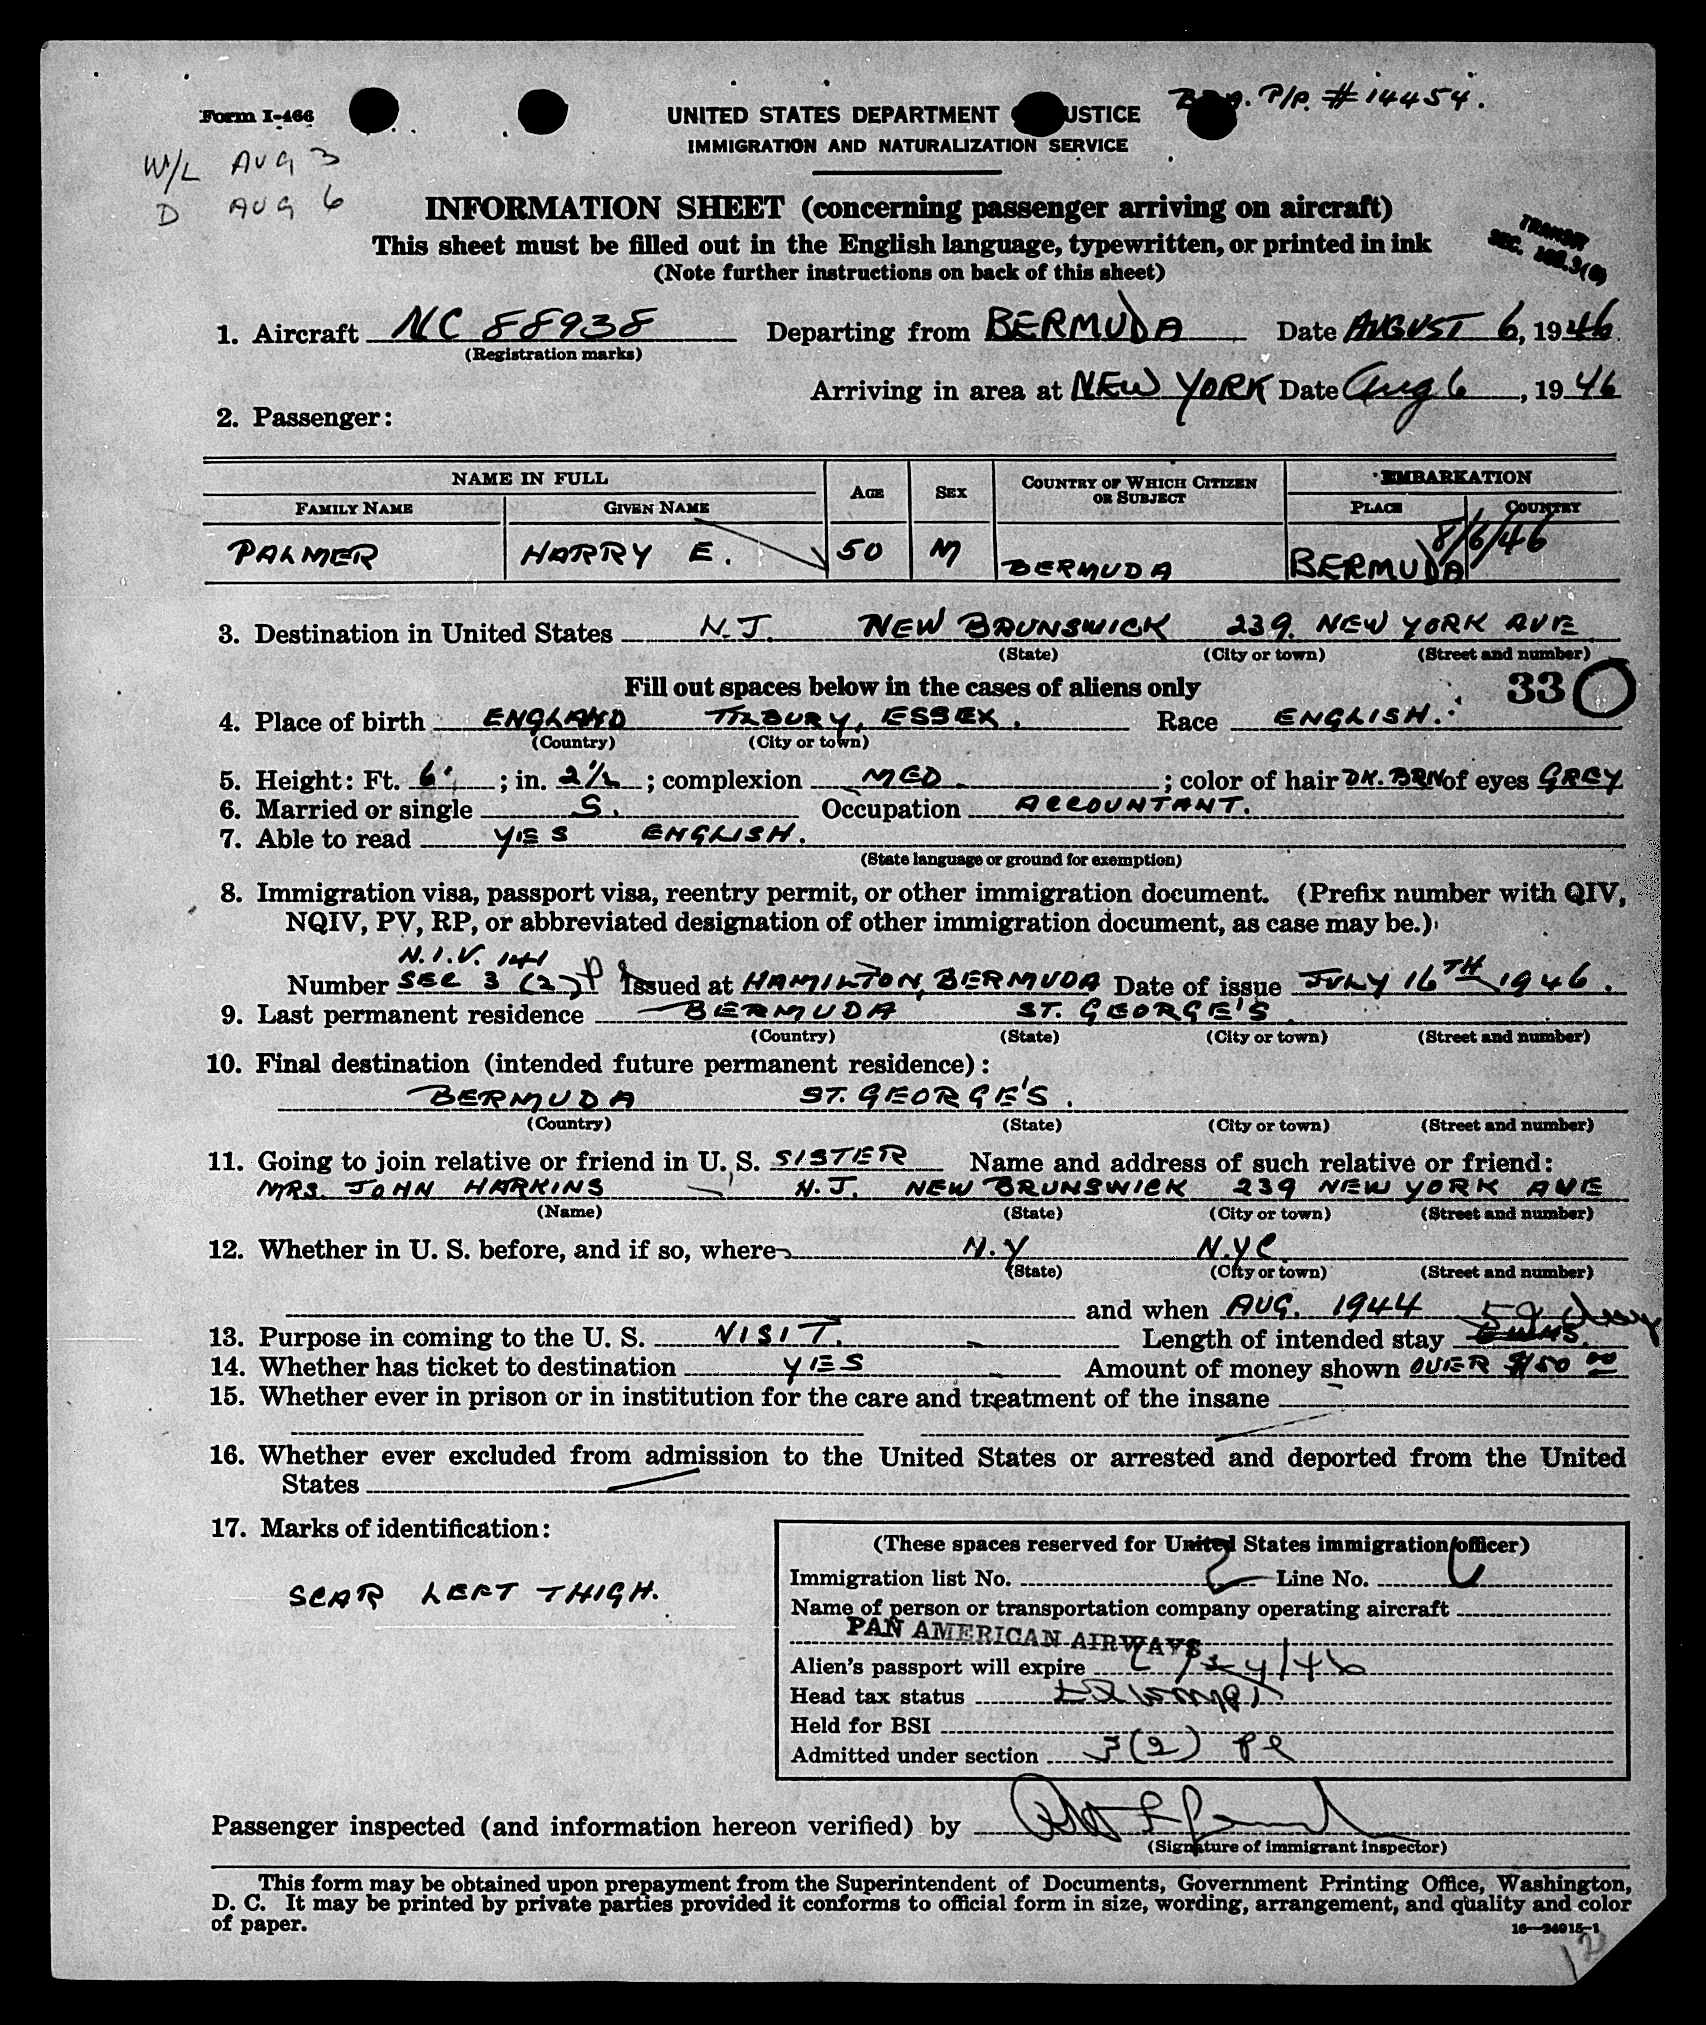 Form I-466
UNITED STATES DEPARTMENT JUSTICE
P/P. # 14454.
IMMIGRATION AND NATURALIZATION SERVICE
W/L AUG 3
D AUG 6
INFORMATION SHEET (concerning passenger arriving on aircraft)
This sheet must be filled out in the English language, typewritten, or printed in ink
(Note further instructions on back of this sheet)
TRANSIT
SEC.
1. Aircraft NC 88938 Departing from BERMUDA Date AUGUST 6, 1946.
(Registration marks)
Arriving in area at NEW YORK Date Aug 6, 1946
2. Passenger:
NAME IN FULL AGE SEX COUNTRY OF WHICH CITIZEN OR SUBJECT EMBARKATION
FAMILY NAME GIVEN NAME PLACE COUNTRY
8/6/46
PALMER HARRY E. 50 M BERMUDA BERMUDA
3. Destination in United States N.J. NEW BRUNSWICK 239. NEW YORK AVE
(State) (City or town) (Street and number)
Fill out spaces below in the cases of aliens only 33
4. Place of birth ENGLAND TILBURY, ESSEX. Race ENGLISH.
(Country) (City or town)
5. Height: Ft. 6'; in. 2 1/2; complexion MED.; color of hair DK. BRN of eyes GREY
6. Married or single S. Occupation ACCOUNTANT.
7. Able to read YES ENGLISH.
(State language or ground for exemption)
8. Immigration visa, passport visa, reentry permit, or other immigration document. (Prefix number with QIV,
NQIV, PV, RP, or abbreviated designation of other immigration document, as case may be.)
N.I.V. 141
Number SEC 3 (2) Issued at HAMILTON, BERMUDA Date of issue JULY 16TH 1946.
9. Last permanent residence BERMUDA ST. GEORGE'S.
(Country) (State) (City or town) (Street and number)
10. Final destination (intended future permanent residence):
BERMUDA ST. GEORGE'S.
(Country) (State) (City or town) (Street and number)
11. Going to join relative or friend in U. S. SISTER Name and address of such relative or friend:
MRS. JOHN HARKINS N.J. NEW BRUNSWICK 239 NEW YORK AVE
(Name) (State) (City or town) (Street and number)
12. Whether in U. S. before, and if so, where N.Y N.Y.C.
(State) (City or town) (Street and number)
and when AUG. 1944
13. Purpose in coming to the U. S. VISIT. Length of intended stay
14. Whether has ticket to destination YES Amount of money shown OVER $150 00
15. Whether ever in prison or in institution for the care and treatment of the insane
16. Whether ever excluded from admission to the United States or arrested and deported from the United
States
17. Marks of identification:
SCAR LEFT THIGH.
(These spaces reserved for United States immigration officer)
Immigration list No. 2 Line No.
Name of person or transportation company operating aircraft
PAN AMERICAN AIRWAYS
Alien's passport will expire
Head tax status
Held for BSI
Admitted under section 3(2)
Passenger inspected (and information hereon verified) by
(Signature of immigrant inspector)
This form may be obtained upon prepayment from the Superintendent of Documents, Government Printing Office, Washington,
D. C. It may be printed by private parties provided it conforms to official form in size, wording, arrangement, and quality and color
of paper.
16—24915-1
12